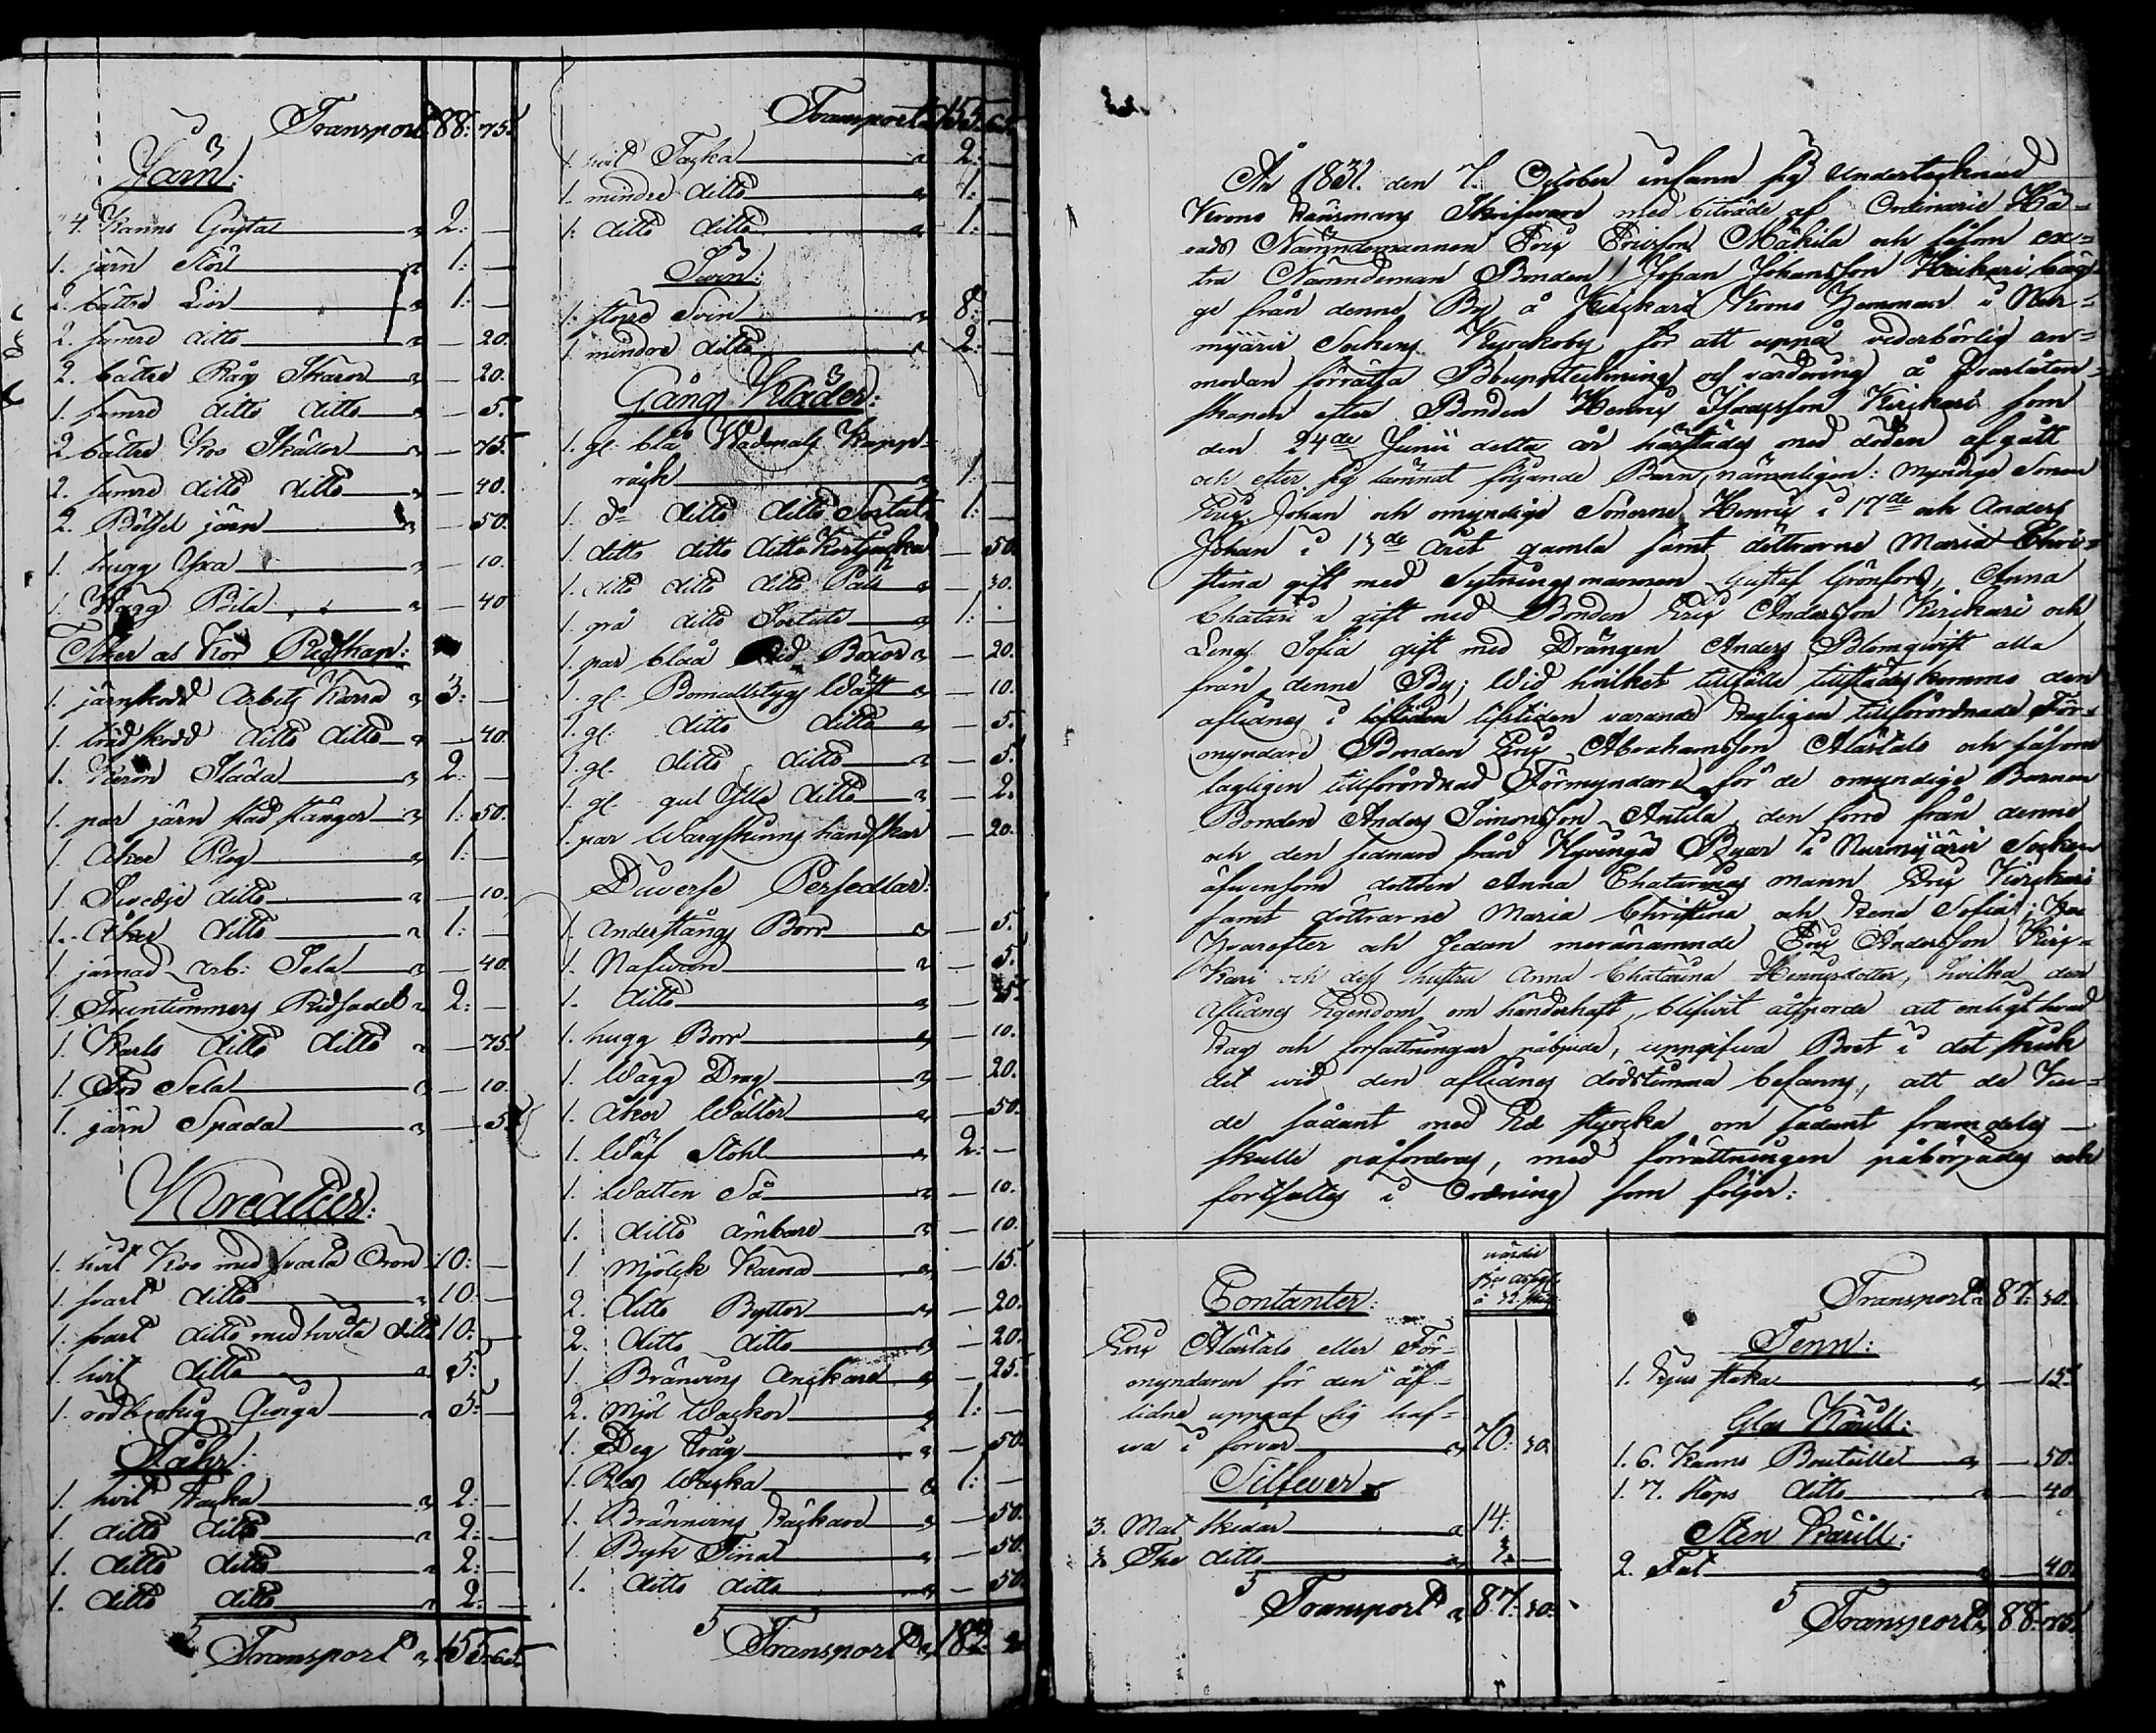 Transport 88: 75.
Järn:
4. Kanns Gryta 2: —
1. järn Stör 1: —
2. bättre Liar 1: —
2. sämre ditto — 20.
2. bättre Råg Skäror — 20.
1. sämre ditto ditto — 5.
2 bättre Koo Skällor — 75.
2. sämre ditto ditto — 40.
2. Betsel järn — 50.
1. hugg Yxa — 10.
1. Wägg Bila — 40
Åker och Kör Redskap:
1. järnskodd Arbets Kärra 3: —
1. trädskodd ditto ditto — 40.
1. Släda 2: —
1. par järn stänger 1: 50.
1. Åker Plog 1: —
1. Svedje ditto — 10.
1. Åker ditto 1: —
1. järnad arb: Sela — 40.
1. Fruntimmers Ridsadel 2: —
1. Karls ditto ditto — 75.
1. Sela — 10.
1. järn Spada — 5.
Kreatur:
1. hvit Koo med svarta Öron 10: —
1. svart ditto 10: —
1. svart ditto med hvita ditto 10: —
1. hvit ditto 5: —
1. rödbrokig Qviga 5: —
Fåhr:
1. hvit Tacka 2: —
1. ditto ditto 2: —
1. ditto ditto 2: —
1. ditto ditto 2: —
Transport 155: 65.
Transport 155: 65.
1. hvit Tacka 2: —
1. mindre ditto 1: —
1. ditto ditto 1: —
Svin:
1. större Svin 8: —
1. mindre ditto 2: —
Gång Kläder:
1. gl. blå Wadmals Kapp-
råck 1: —
1. d:o ditto ditto Sortute 1: —
1. ditto ditto ditto Kortjacka — 50.
1. ditto ditto ditto — 30.
1. grå ditto Sortute 1: —
1. par blåa Böxor — 20.
1. gl. Bomullstygs Wäst — 10.
1. gl. ditto ditto — 5.
1. gl. ditto ditto — 5.
1. gl. gul Ylle ditto — 2.
1. par Wargskinns handskar — 20.
Diverse Persedlar:
1. Anderstångs Borr — 5.
1. Nafware — 5.
1. ditto — 25.
1. hugg Borr — 10.
1. Wägg Drag — 20.
1. åker Wälter — 50.
1. Wäf Stohl 2: —
1. Watten Så — 10.
1. ditto ämbare — 10.
1. Mjölck Kärna — 15.
2. ditto Byttor — 20.
2. ditto ditto — 20.
1. Bränvins Anckare — 25.
2. Mjöl Wackor 1: —
1. Deg tråg — 50.
1. Wacka 1: —
1. Bränvins — 50.
1. Byk Tina — 50.
1. ditto ditto — 50.
Transport 182:
År 1831. den 7. October infann sig Undertecknad
Krono Länsmans Skrifware med biträde af Ordinarie Hä-
rads Nämndemannen Eric Ericsson Mäkilä och såsom ex-
tra Nämndeman Bonden Johan Johansson Heikari bäg-
ge från denne By å Krono Hemman i Nur-
mijärvi Sockens Kyrckoby, för att uppå vederbörlig an-
modan förrätta Boupteckning och värdering å qvarlåten-
skapen efter Bonden Henric Isacsson Kirckari som
den 24de Junii detta år härstädes med döden afgått
och efter sig lämnat följande Barn, nämnligen: myndige Sonen
Eric Johan och omyndige Sönerne Henric i 17de och Anders
Johan i 13de året gamla samt döttrarne Maria Chri-
stina gift med Sytningsmannen Gustaf Grönfors, Anna
Chatari a gift med Bonden Eric Andersson Kirckari och
Lena Sofia gift med Drängen Anders Blomqwist alla
från denne By; Wid hvilket tillfälle tillstädeskommo den
aflidnes i lifstiden varande lagligen tillförordnade För-
myndare Bonden Eric Abrahamsson Alästalo och såsom
lagligen tillförordnad Förmyndare för de omyndige Barnen
Bonden Anders Simonsson Antila, den förre från denne
och den sednare från Hyvingä Byar i Nurmijärvi Socken
äfwensom dottren Anna Chatarinas mann Eric Kirckari
samt döttrarne Maria Christina och Lena Sofia;
Hvarefter och sedan meranämnde Eric Andersson Kirc-
kari och dess hustru Anna Chatarina Henricsdotter, hvilka den
aflidnes Egendom om händerhaft, blifwit åtsporde att enligt hwad
Lag och författningar påbjuda, uppgifwa Boet i det skick
det wid den aflidnes dödstimma befanns, att de kun-
de sådant med Ed styrcka om sådant framdeles —
skulle påfordras, med förrättningen påbörjades och
fortsattes i Ordning som följer:
Contanter:
värdie
Eric Alästalo eller För-
myndaren för den af-
lidne uppgaf sig haf-
wa i förvar 70: 30.
Silfwer
3. Mat Skedar 14:
The ditto
Transport 87: 30.
Transport 87: 30.
Tenn:
1. Ljus staka — 15.
Glas Kärill:
1. 6. Kanns Bouteille — 50.
1. 7. Stops ditto — 40
Sten Kärill:
2. Fat — 40.
Transport 88: 75.